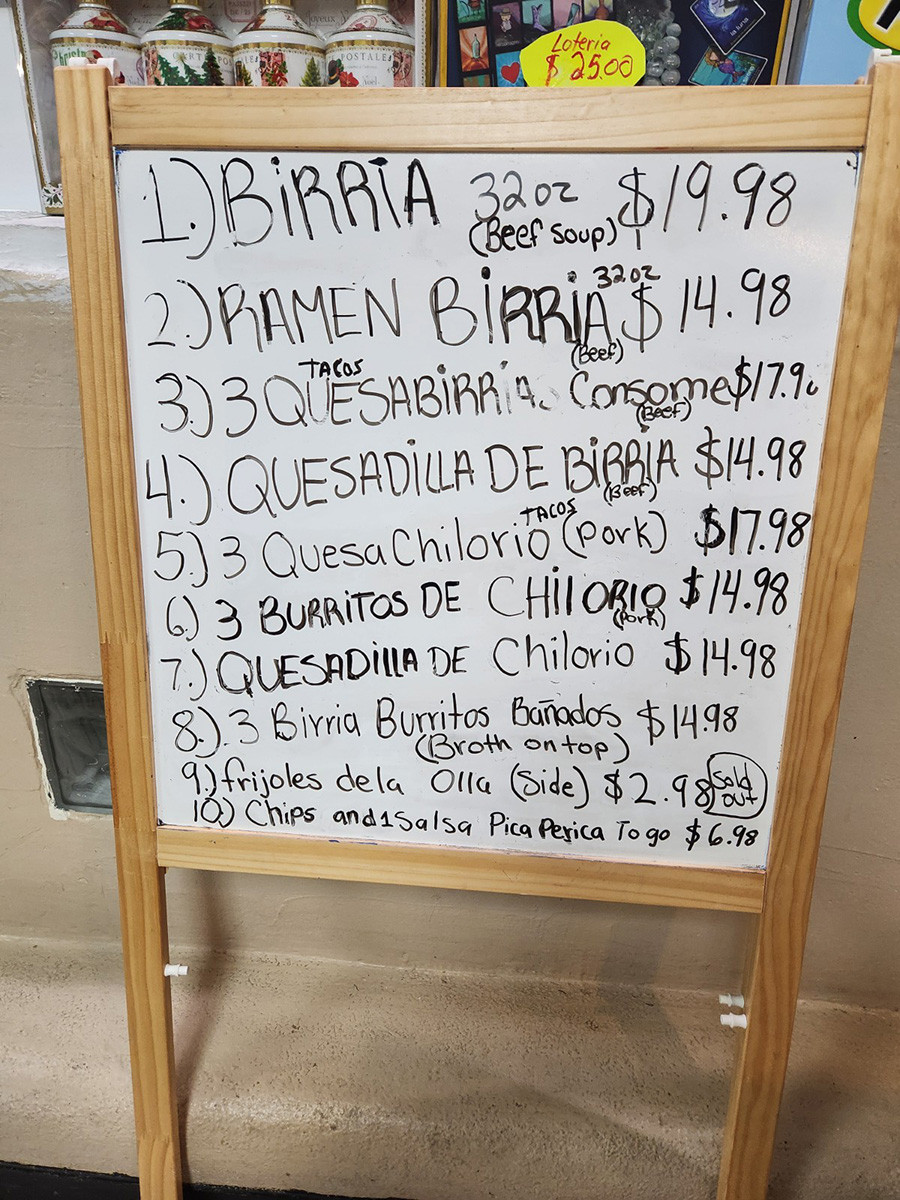 Loteria
$ 25.00
POSTALE
1.) BIRRIA 32oz $19.98
(Beef soup)
2.) RAMEN BIRRIA 32oz $14.98
(Beef)
3.) 3 TACOS QUESABIRRIA Consome $17.9
(Beef)
4.) QUESADILLA DE BIRRIA $14.98
(Beef)
5.) 3 QuesaChilorio TACOS (pork) $17.98
6.) 3 BURRITOS DE CHILORIO $14.98
(Pork)
7.) QUESADILLA DE Chilorio $14.98
8.) 3 Birria Burritos Bañados $14.98
(Broth on top)
9.) frijoles dela Olla (Side) $2.98 Sold out
10.) Chips and 1 Salsa Pica Perica To go $6.98